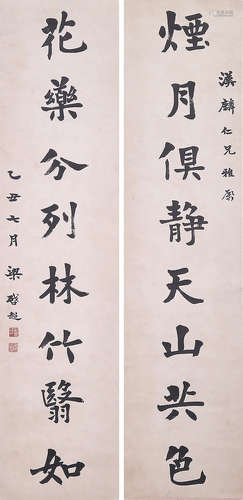 漢麟仁兄雅屬
煙月俱静天山共色
花藥分列林竹翳如
乙丑七月梁啓超